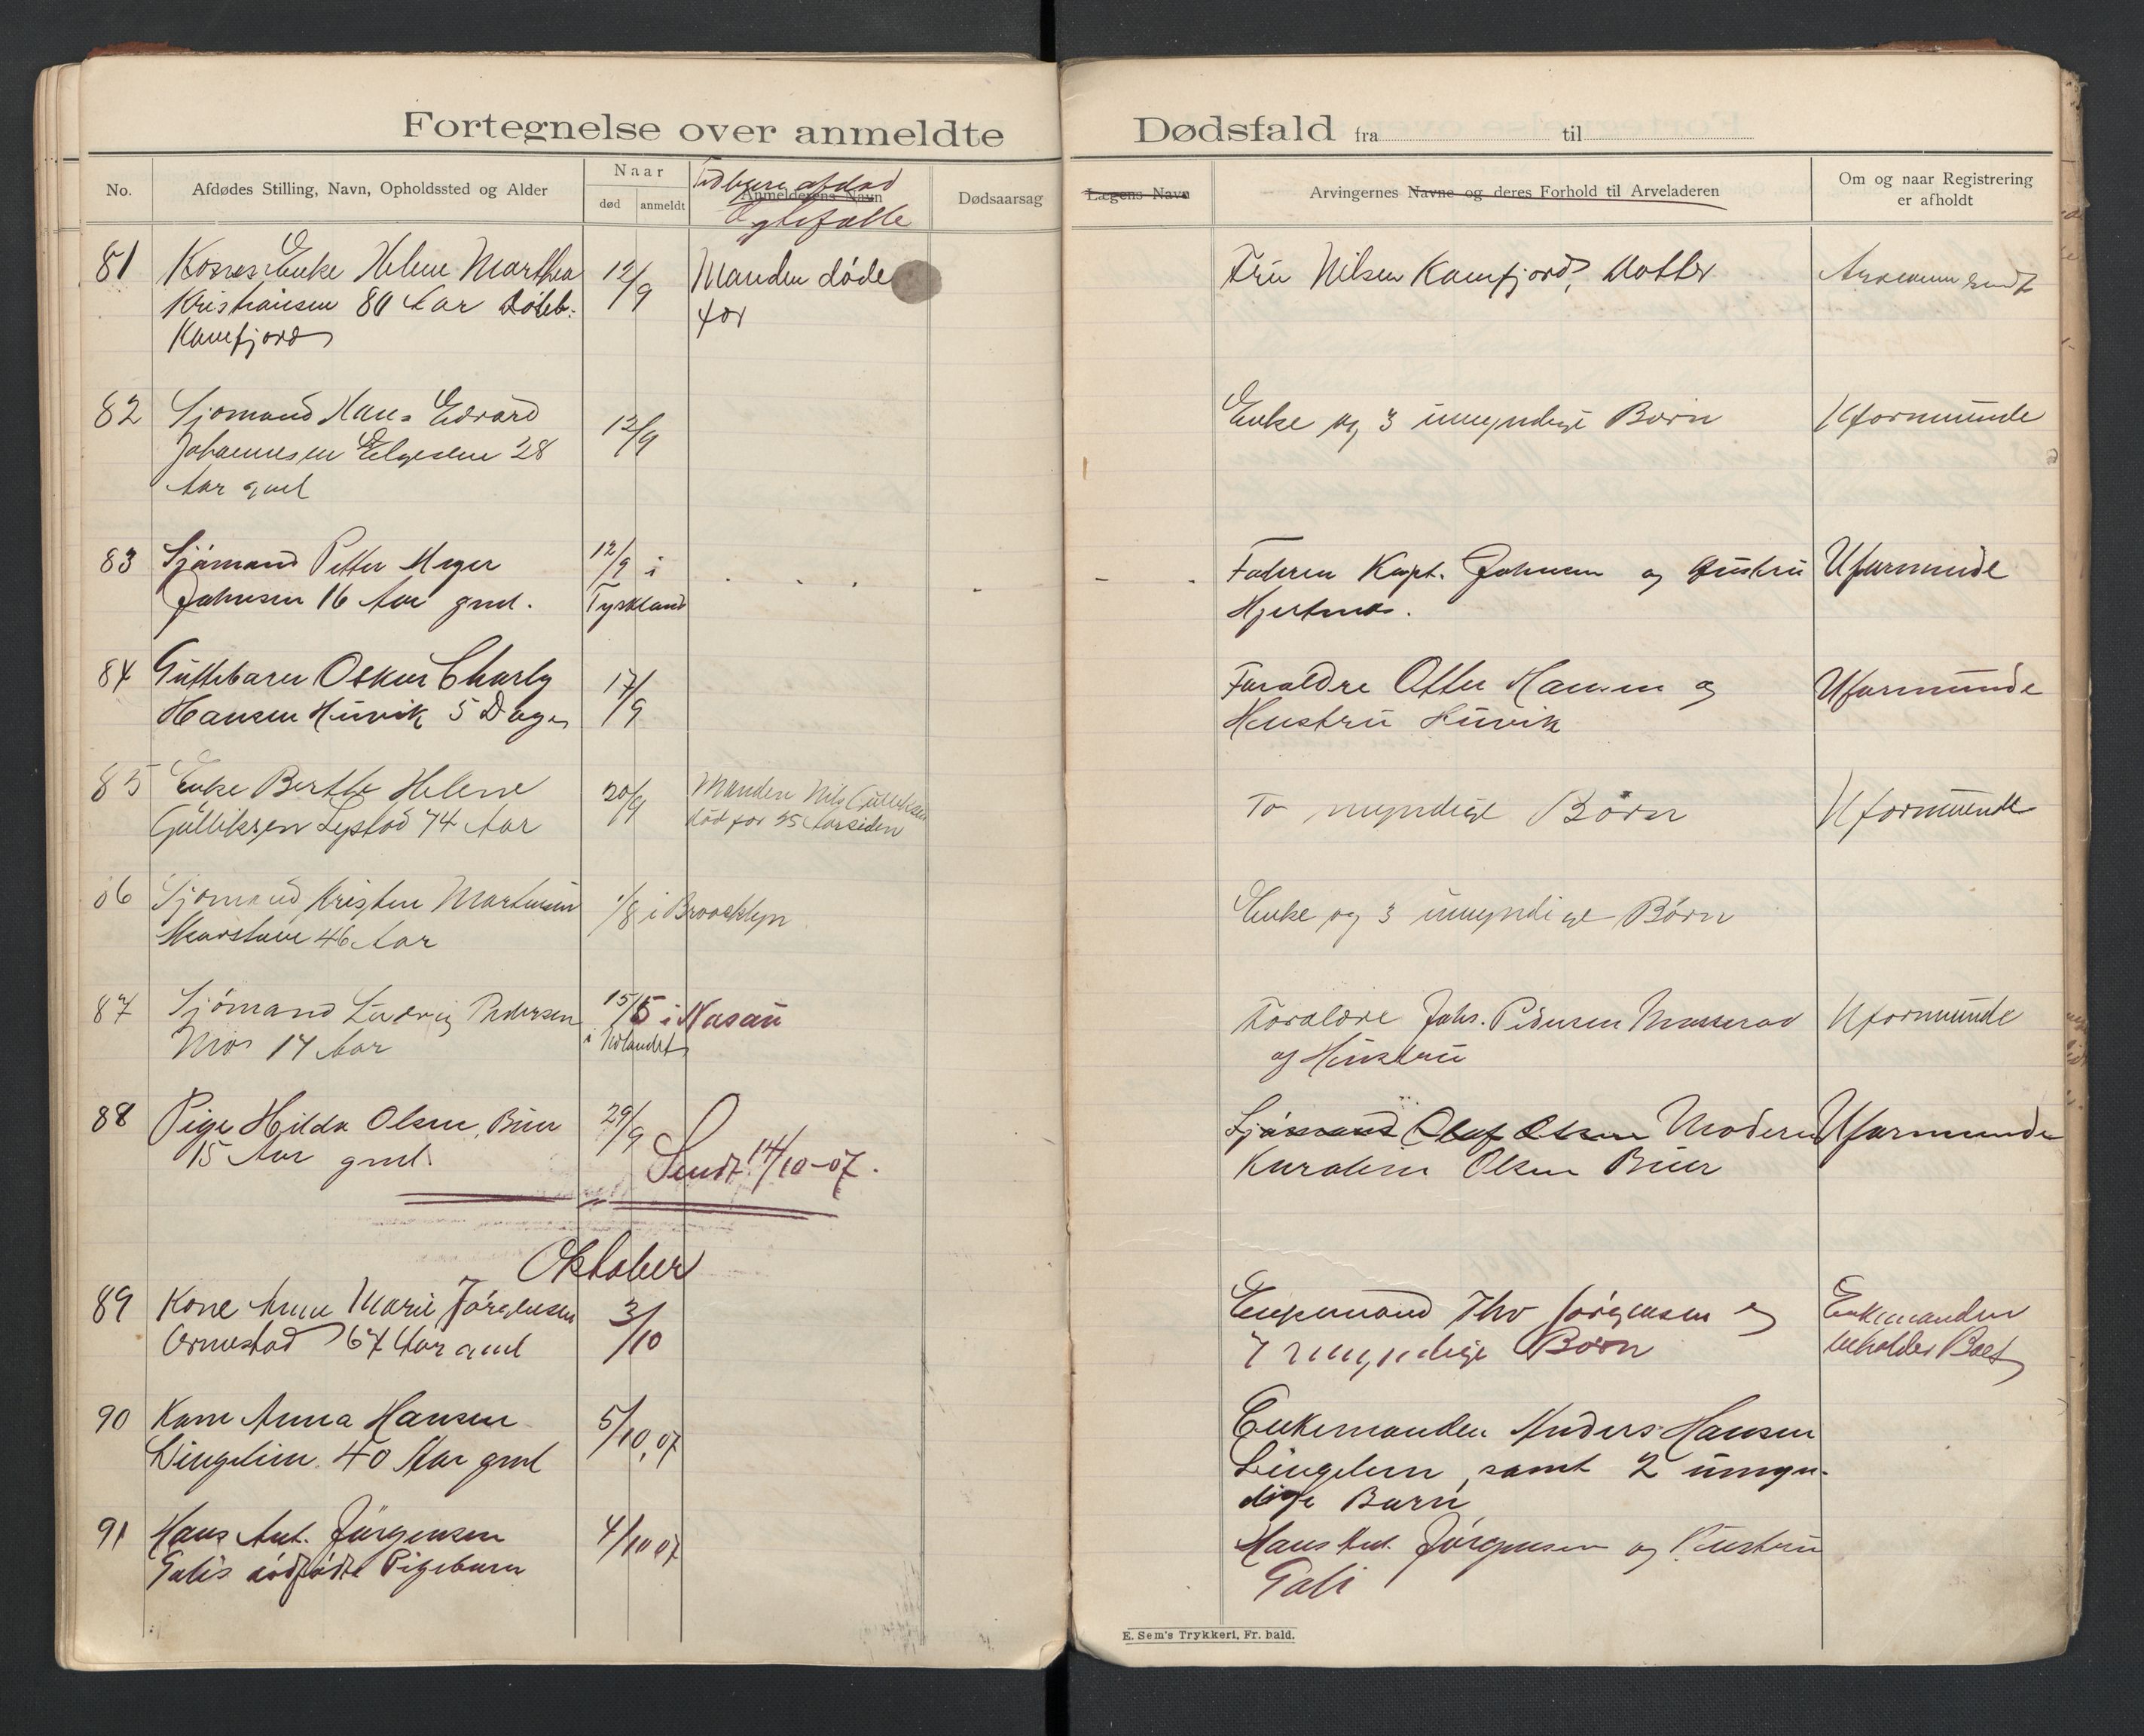 Fortegnelse over anmeldte Dødsfald fra til
No.
Afdødes Stilling, Navn, Opholdssted og Alder
Naar
død
anmeldt
Anmelderens Navn
Tidligere afdød
Ægtefælle
Dødsaarsag
Lægens Navn
Arvingernes Navne og deres Forhold til Arveladeren
Om og naar Registrering
er afholdt
81 Enke Helene Marthea 12/9 Manden døde Fru Nilsen Kamfjord, Datter
Kristiansen 80 Aar før
Kamfjord
82 Sjømand Hans Edvard 12/9 Enke og 3 umyndige Børn Uformuende
Johannesen Elgesem 28
Aar gml
83 Sjømand Petter Meyer 12/9 i Faderen Kapt. Johnsen og Hustru Uformuende
Johnsen 16 Aar gml. Tyskland Hjertnes.
84 Guttebarn Oskar Charly 17/9 Foraldre Otter Hansen og Uformuende
Hansen Huvik 5 Dage Hustru Huvik
85 Enke Berthe Helene 20/9 Manden Nils Gulliksen To myndige Børn Uformuende
Gulliksen Lystad 74 Aar død for 25 Aar siden
86 Sjømand Kristen Martinsen 1/8 i Brooklyn Enke og 3 umyndige Børn
46 Aar
87 Sjømand Ludvig Pedersen 15/5 i Nasau Foraldre Johs. Pedersen Masserød Uformuende
Mo 17 Aar i Udlandet og Hustru
88 Pige Hilda Olsen, Buer 29/9 Sjømand Olaf Olsen Moderen Uformuende
15 Aar gml. Sendt 14/10-07. Karoline Olsen Buer
Oktober
89 Kone Anne Marie Jørgensen 3/10 Enkemand Thv Jørgensen og Enkemanden
Ormestad 67 Aar gml 7 myndige Børn beholder Boet
90 Kone Anna Hansen 5/10, 07 Enkemanden Anders Hansen
Lingelem 40 Aar gml Lingelem, samt 2 umyn-
dige Barn
91 Hans Ant. Jørgensen 4/10 07 Hans Ant. Jørgensen og Hustru
Golis dødfødte Pigebarn Goli
E. Sem's Trykkeri, Fr. hald.